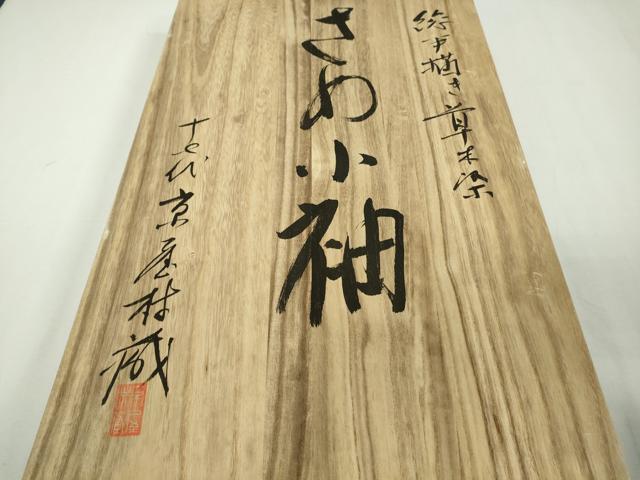 総手描き草木染
さめ小袖
十七代京屋林蔵